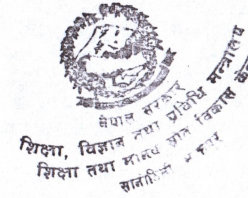 नेपाल सरकार
शिक्षा, विज्ञान तथा प्रविधि मन्त्रालय
शिक्षा तथा मानव स्रोत विकास केन्द्र
सानोठिमी